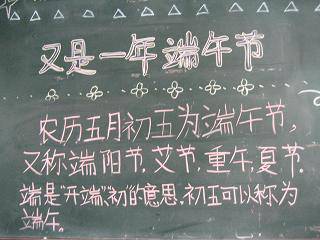 又是一年端午节
农历五月初五为端午节，
又称端阳节.艾节，重午，夏节.
端是"开端"、"初"的意思.初五可以称为
端午。